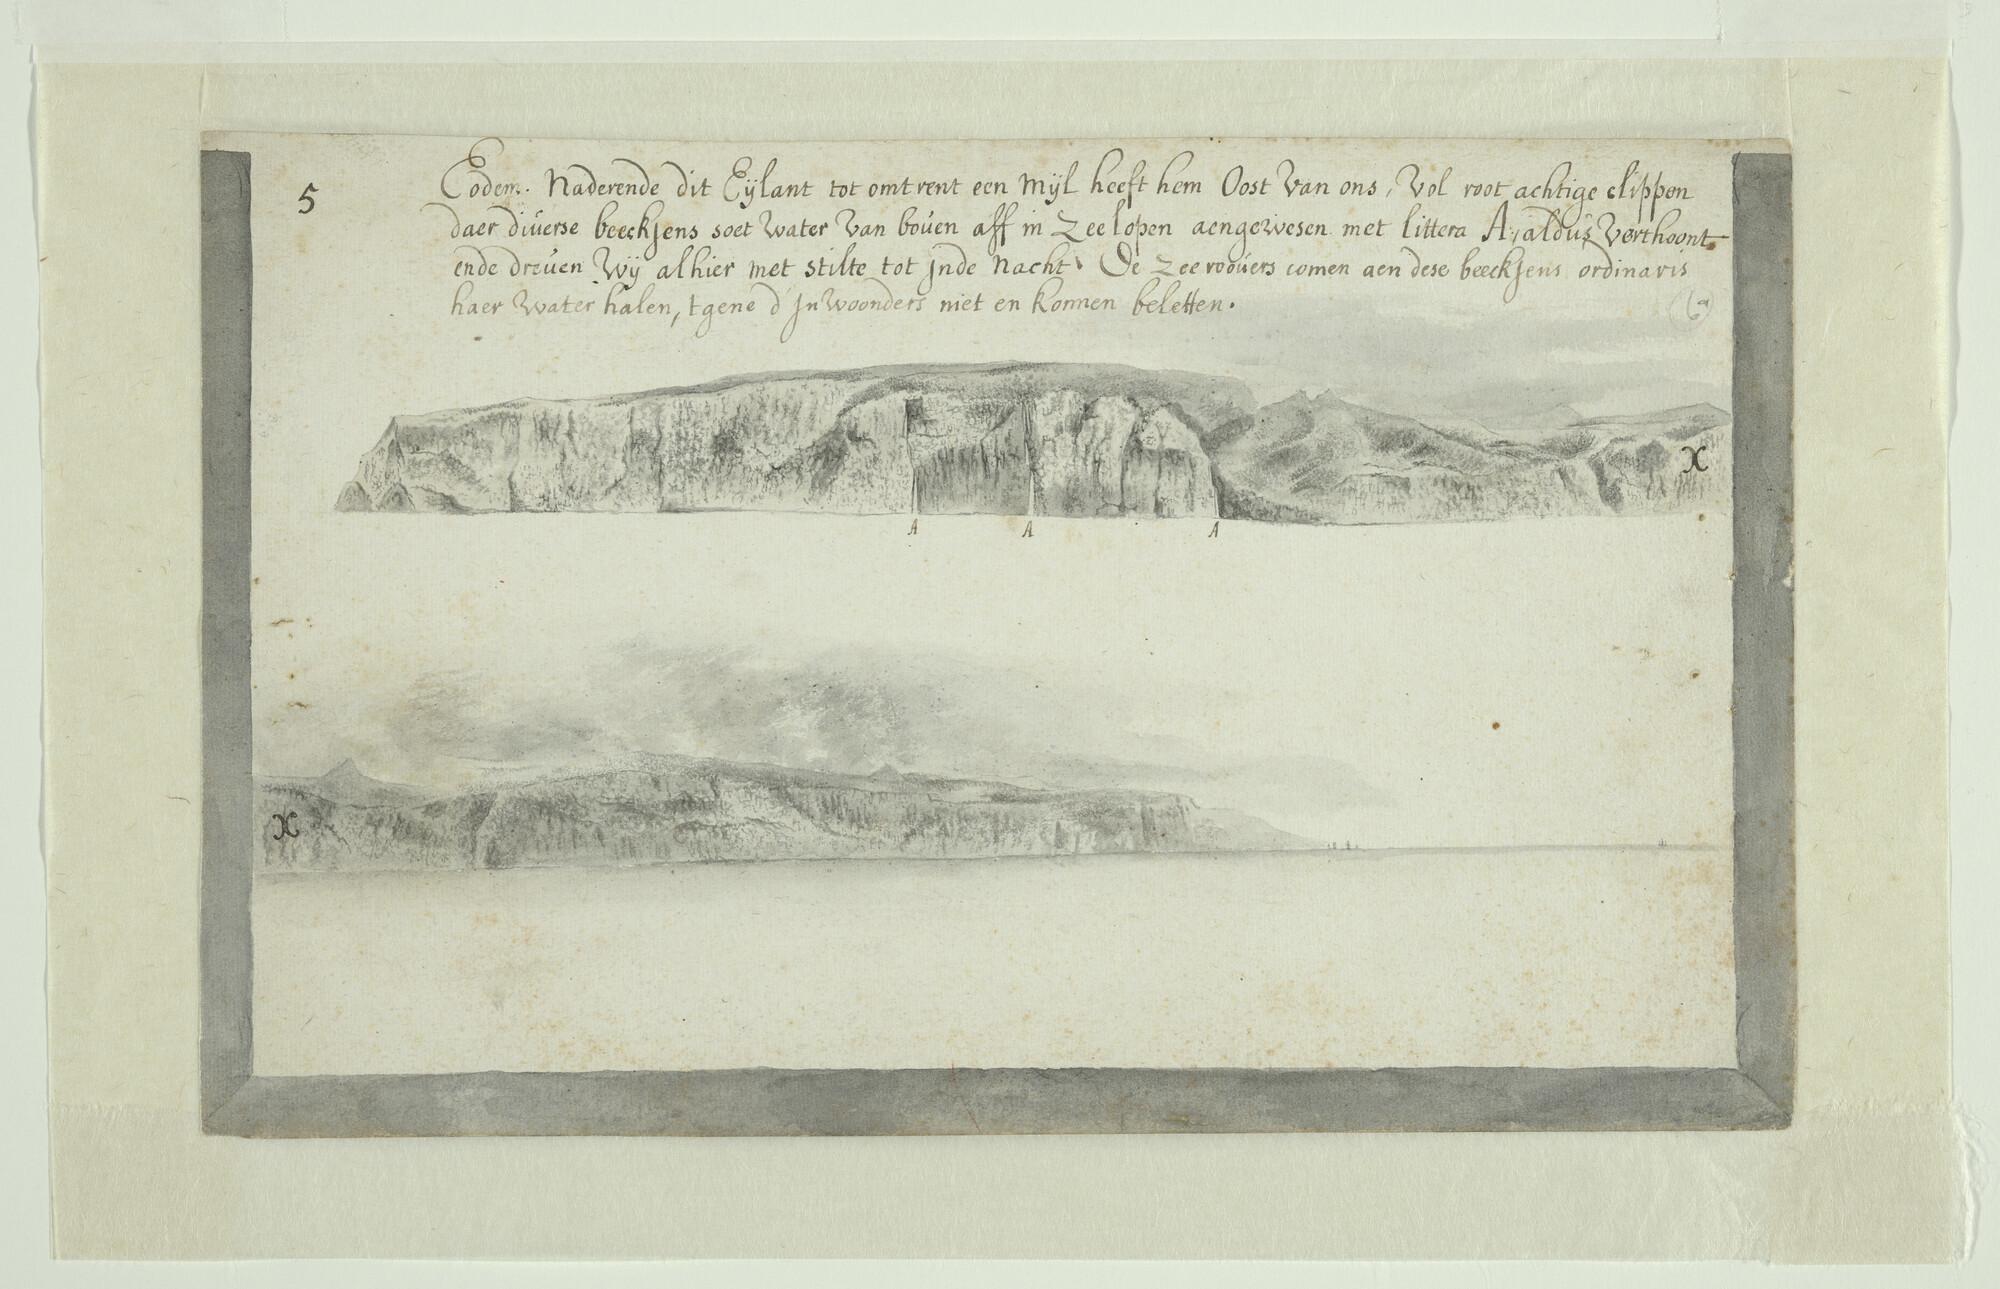 5
Eodem. Naderende dit Eijlant tot omtrent een Mijl heeft hem Oost van ons, vol root achtige clippen
daer diuerse beeckjens soet water van bouen aff in Zee lopen aengewesen met littera A: aldus verthoont
ende dreuen Wij alhier met stilte tot jnde Nacht. De Zeeroouers comen aen dese beeckjens ordinaris
haer water halen, tgene d'Jnwoonders niet en konnen beletten.
X
A A A
X